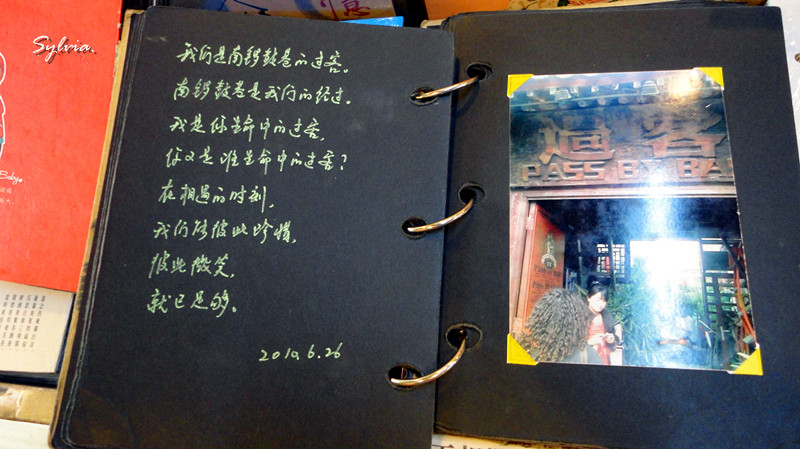 Sylvia.
我们是南锣鼓巷的过客。
南锣鼓巷是我们的经过。
我是你生命中的过客,
你又是谁生命中的过客?
在相遇的时刻,
我们能彼此珍惜,
彼此微笑,
就已足够。
2010.6.26
過客
PASS BY BA